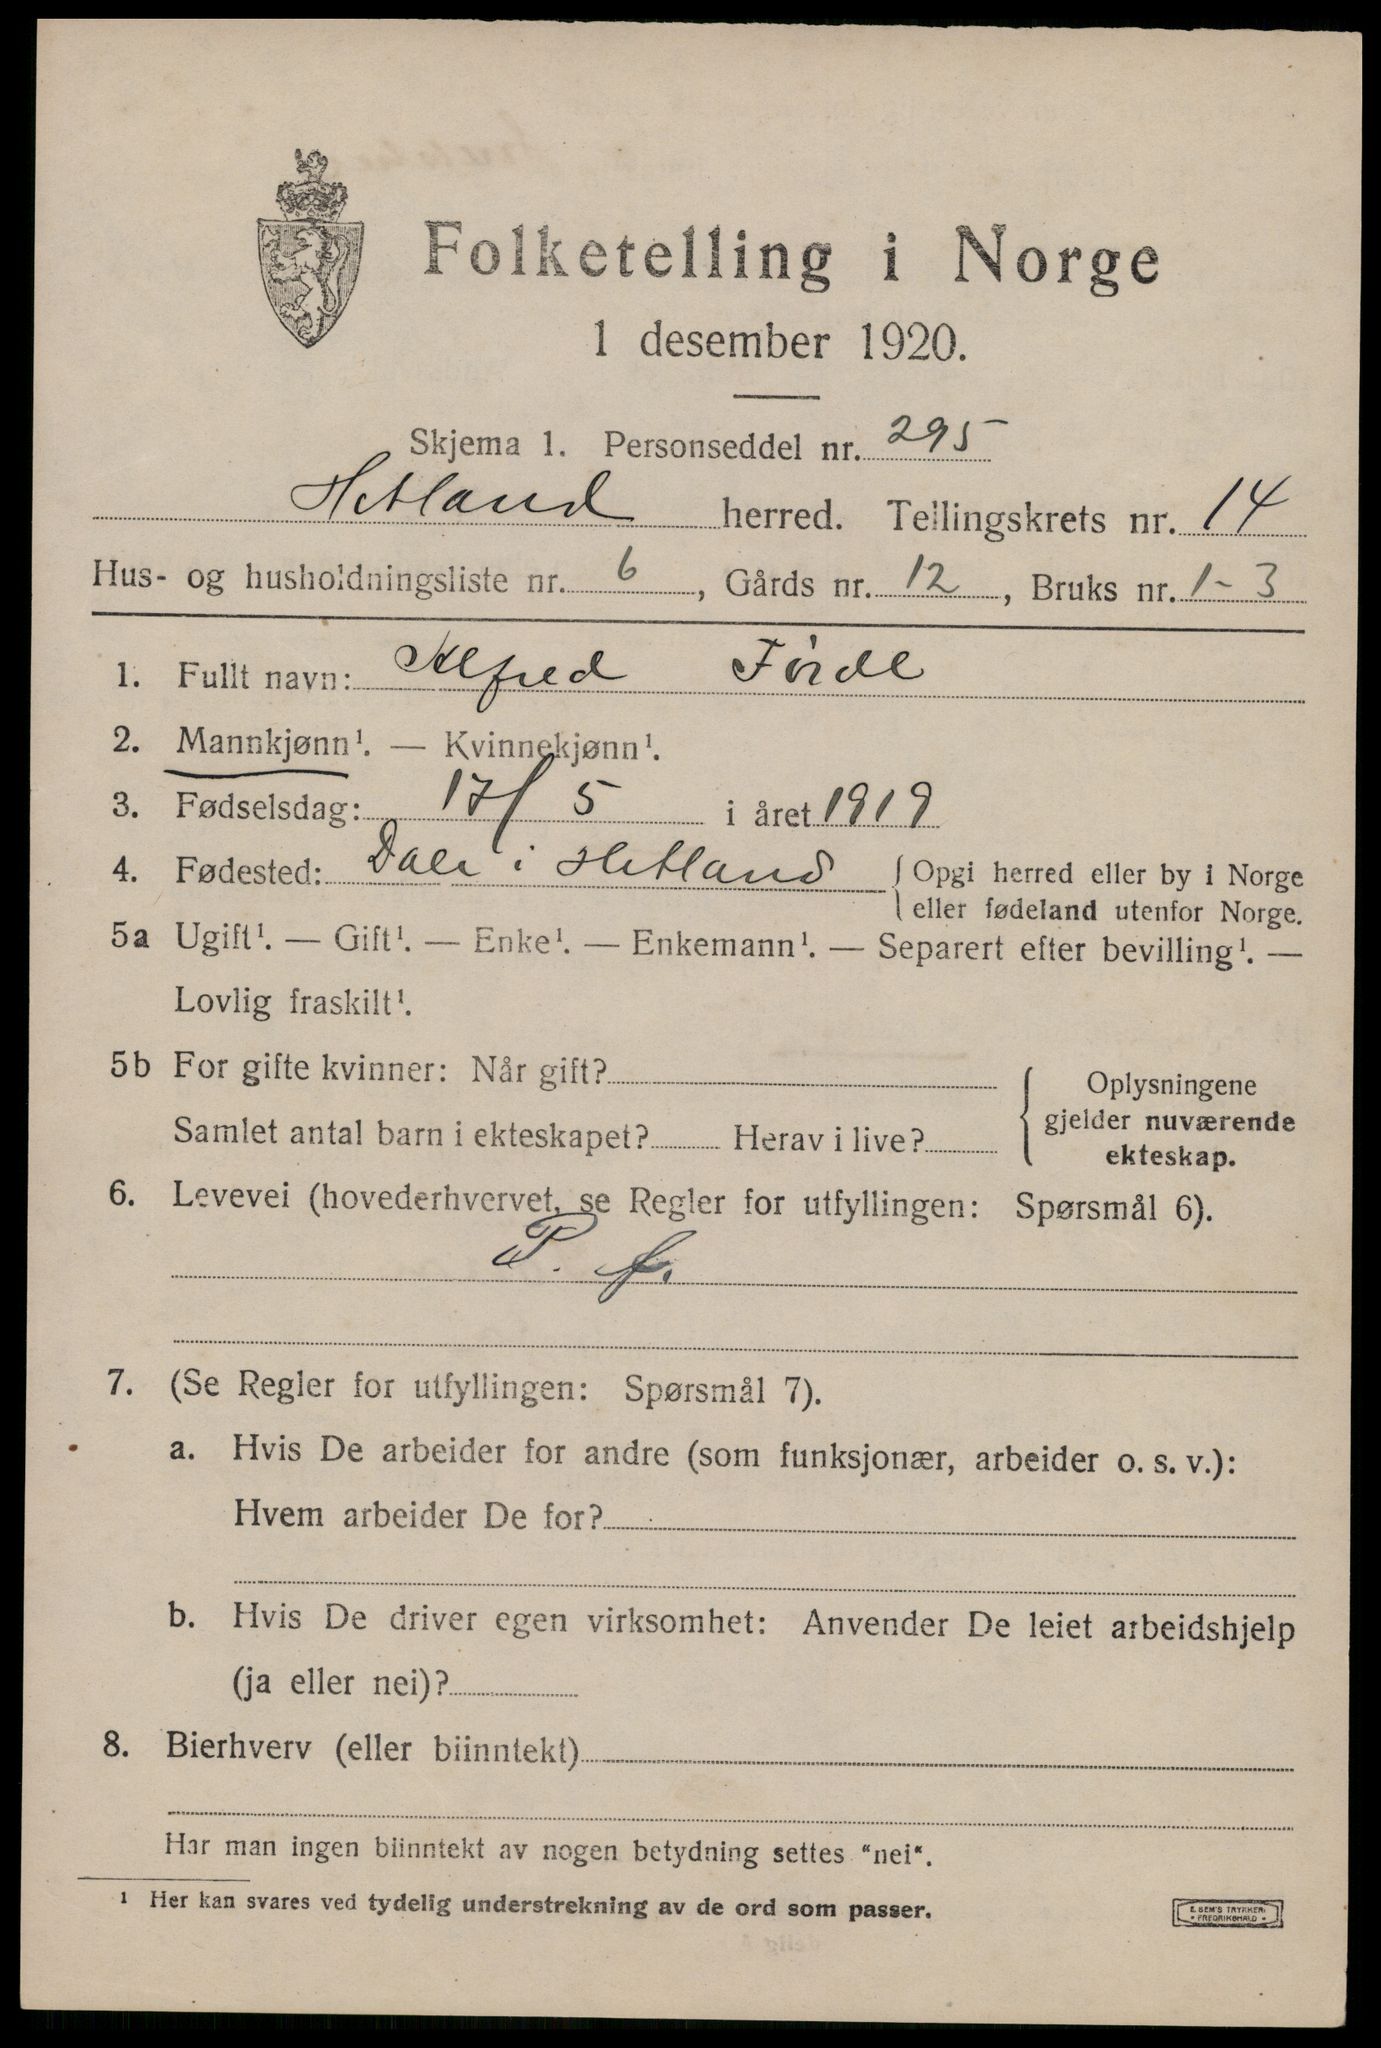 Folketelling i Norge
1 desember 1920.
Skjema 1. Personseddel nr. 295
Hetland herred. Tellingskrets nr. 14
Hus- og husholdningsliste nr. 6, Gårds nr. 12, Bruks nr. 1-3
1. Fullt navn: Alfred Førde
2. Mannkjønn¹. — Kvinnekjønn¹.
3. Fødselsdag: 17/5 i året 1919
4. Fødested: Dale i Hetland { Opgi herred eller by i Norge
eller fødeland utenfor Norge.
5a Ugift¹. — Gift¹. — Enke¹. — Enkemann¹. — Separert efter bevilling¹. —
Lovlig fraskilt¹.
5b For gifte kvinner: Når gift? { Oplysningene
gjelder nuværende
ekteskap.
Samlet antal barn i ekteskapet? Herav i live?
6. Levevei (hovederhvervet, se Regler for utfyllingen: Spørsmål 6).
P. f.
7. (Se Regler for utfyllingen: Spørsmål 7).
a. Hvis De arbeider for andre (som funksjonær, arbeider o. s. v.):
Hvem arbeider De for?
b. Hvis De driver egen virksomhet: Anvender De leiet arbeidshjelp
(ja eller nei)?
8. Bierhverv (eller biinntekt)
Har man ingen biinntekt av nogen betydning settes "nei".
¹ Her kan svares ved tydelig understrekning av de ord som passer.
E. SEM'S TRYKKERI
• FREDRIKSHALD •